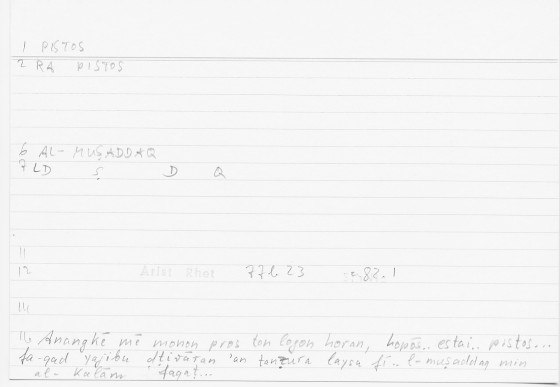 1 PISTOS
2 RA PISTOS
6 AL-MUṢADDAQ
7 LD Ṣ D Q
11
12 Arist Rhet 77b23 82.1
14
16 Anangkē mē monon pros ton logon horan, hopōs.. estai.. pistos...
fa-qad yajibu ḍṭirāran 'an tanẓura laysa fī.. l-muṣaddaq min
al-kalām faqaṭ...